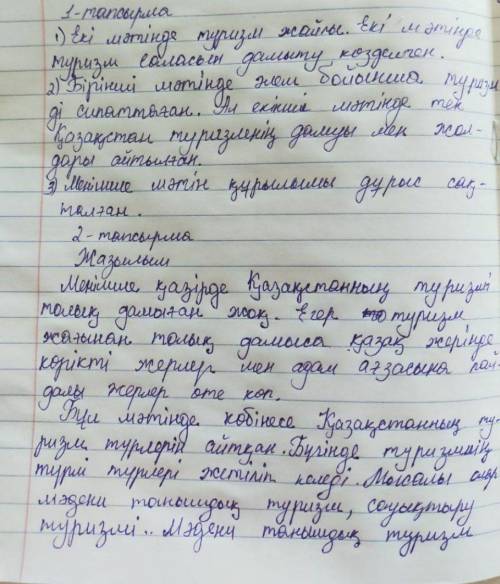 1-тапсырма
1) Екі мәтінде туризм жайлы. Екі мәтінде
туризм саласын дамыту көзделген.
2) Бірінші мәтінде жем бойынша туризм
ді сипаттаған. Ал екінші мәтінде тек
Қазақстан туризмнің дамуы мен жол-
дары айтылған.
3) Менімше мәтін құрылымы дұрыс сақ-
талған.
2-тапсырма
Жазылым
Менімше қазірде Қазақстанның туризмі
толық дамыған жоқ. Егер туризм
жағынан толық дамыса қазақ жерінде
көрікті жерлер мен адам ағзасына пай-
далы жерлер өте көп.
Бұл мәтінде көбінесе Қазақстанның ту-
ризм түрлерін айтқан. Бүгінде туризмнің
түрлі түрлері жетіліп келеді. Мысалы олар
мәдени танымдық туризм, сауықтыру
туризмі.. Мәдени танымдық туризм